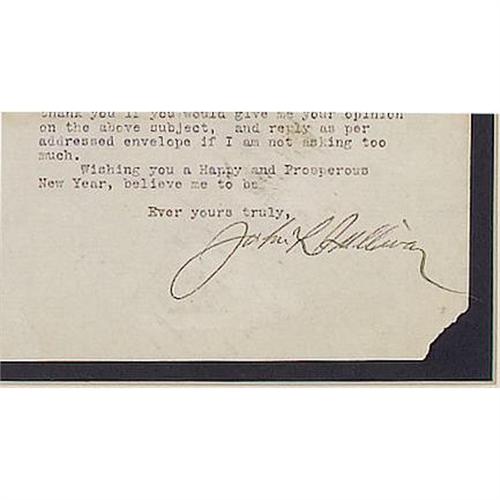 thank you if you would give me your opinion
on the above subject, and reply as per
addressed envelope if I am not asking too
much.
Wishing you a Happy and Prosperous
New Year, believe me to be
Ever yours truly,
John L Sullivan